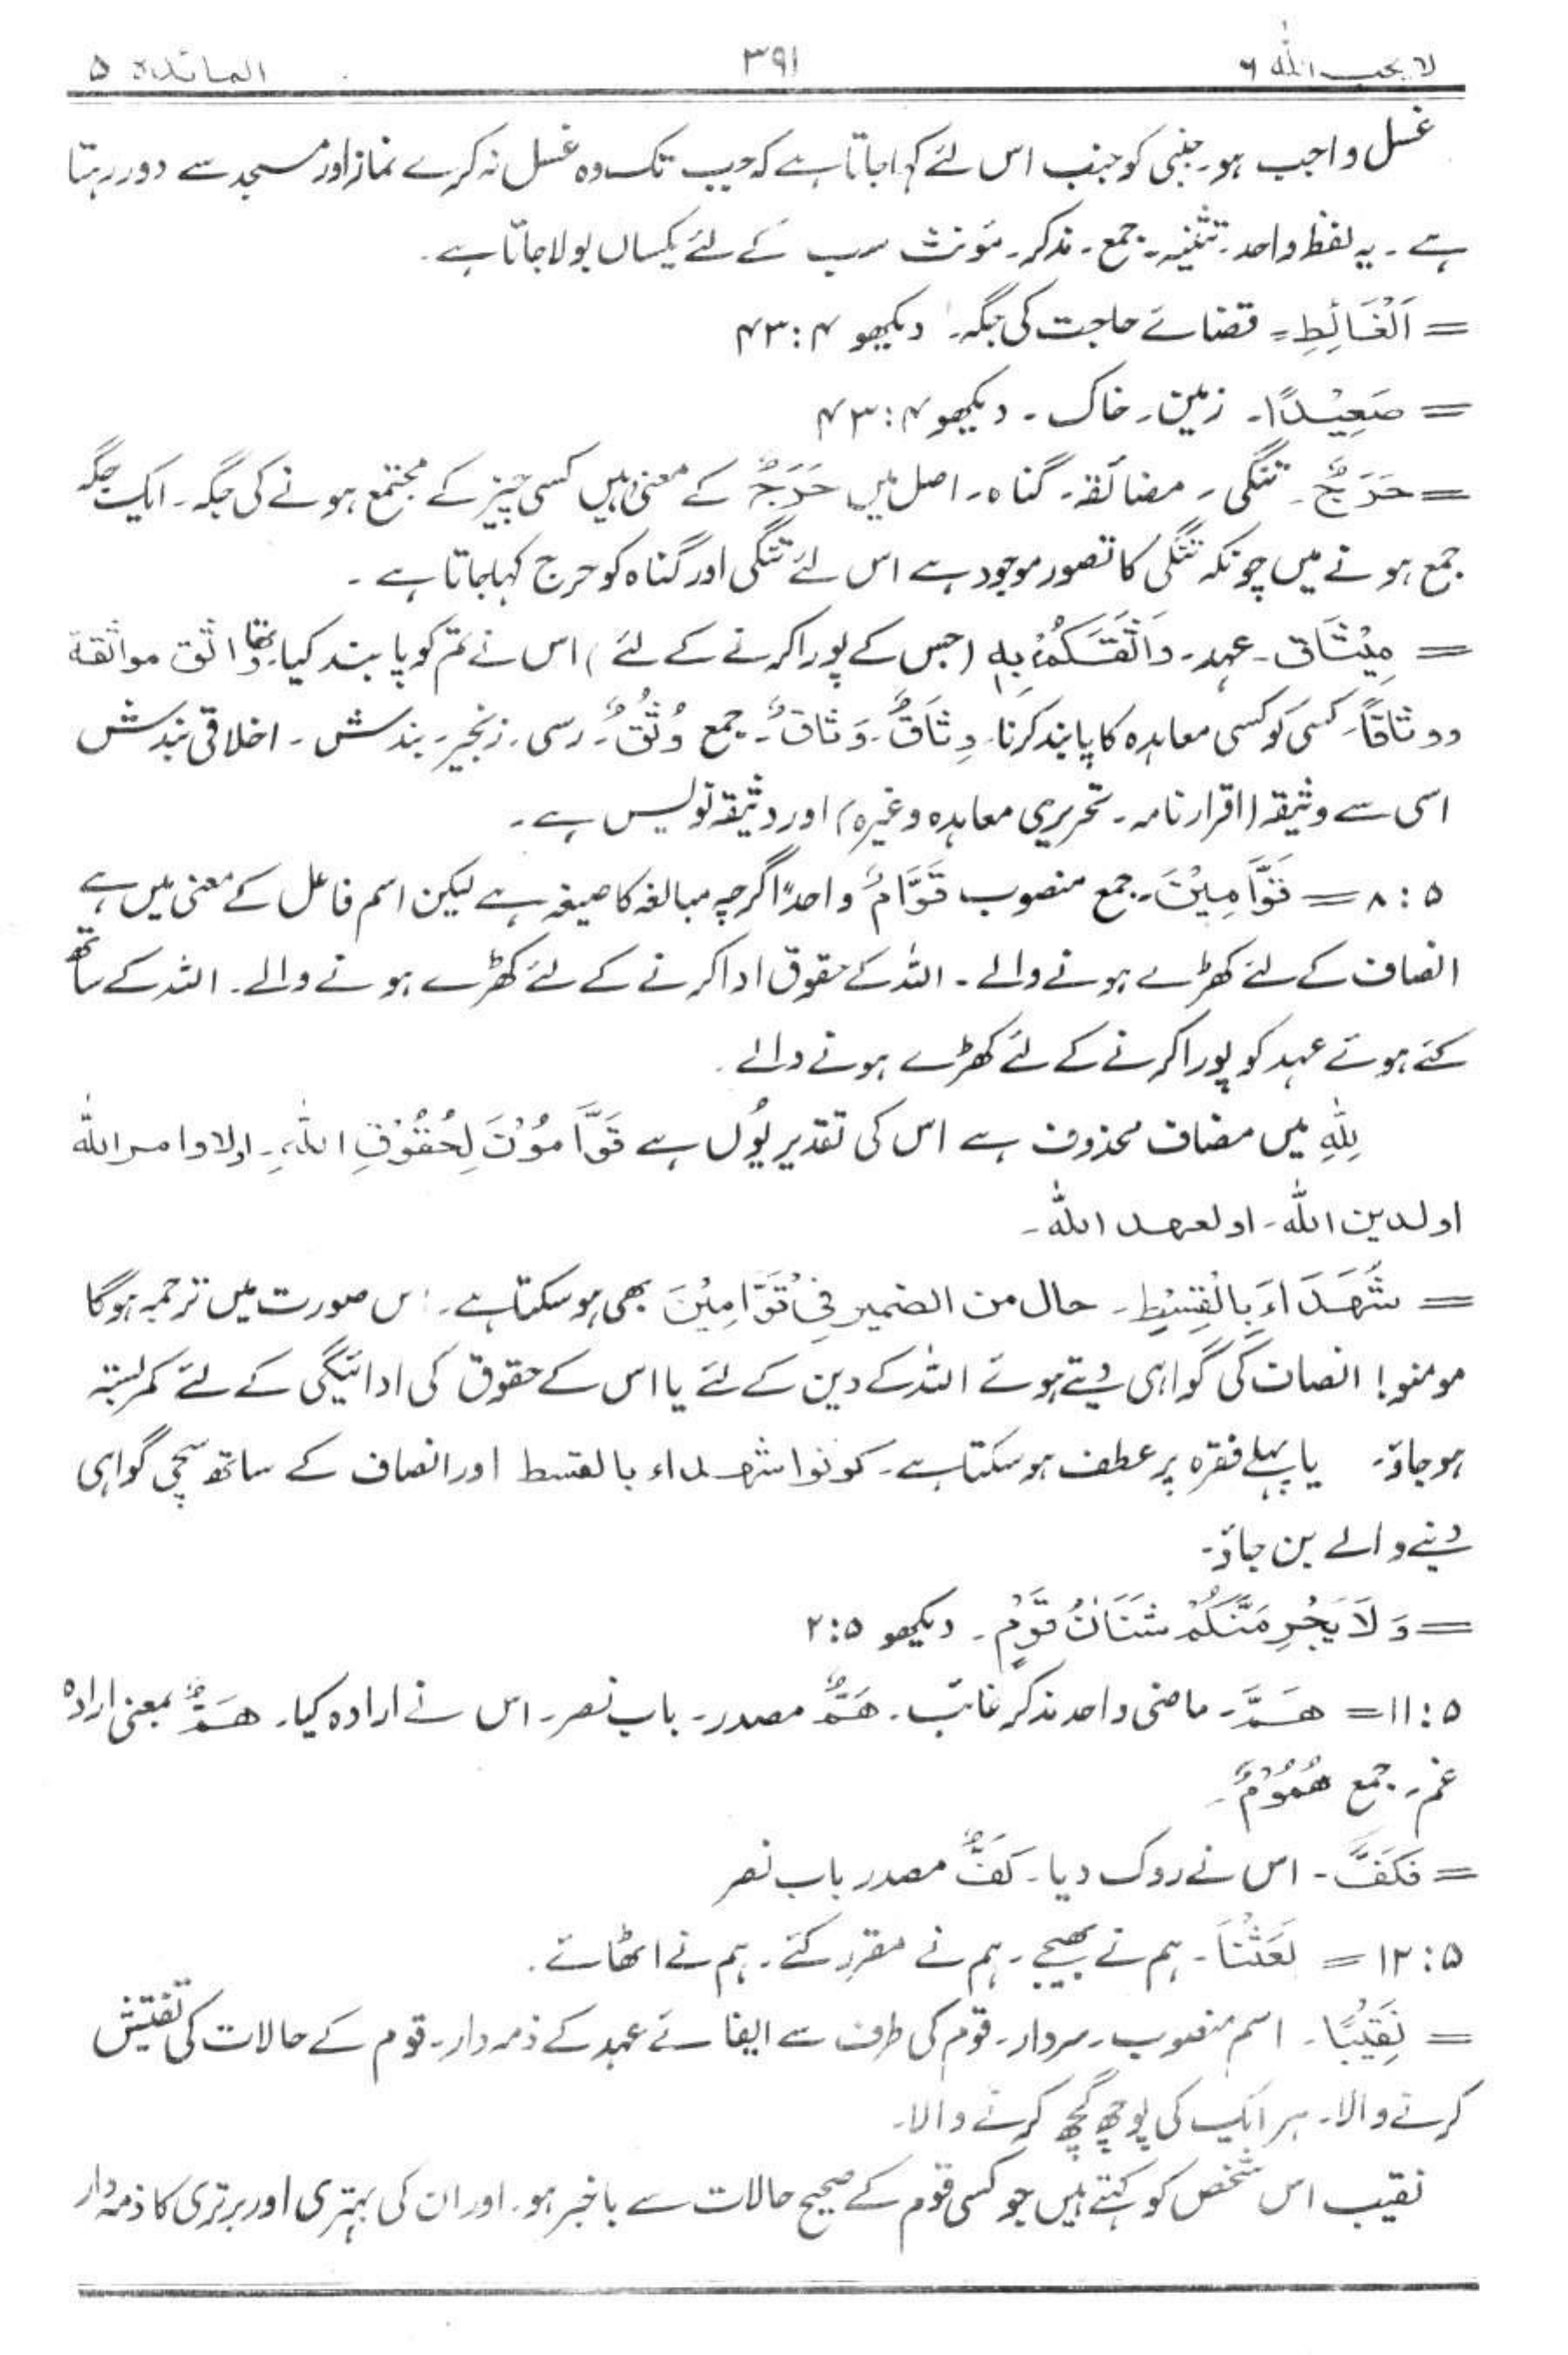 لا یحب اللہ ۶ ۳۹۱ المائدة ۵
غسل واجب ہو۔ جنبی کو جنب اس لئے کہا جاتا ہے کہ جب تک وہ غسل نہ کرے نماز اور مسجد سے دور رہتا
ہے۔ یہ لفظ واحد۔ تثنیہ۔ جمع۔ مذکر۔ مؤنث سب کے لئے یکساں بولا جاتا ہے۔
= اَلْغَائِطِ = قضائے حاجت کی جگہ۔ دیکھو ۴:۴۳
= صَعِیْدًا۔ زمین۔ خاک۔ دیکھو ۴:۴۳
= حَرَجٌ۔ تنگی۔ مضائقہ۔ گناہ۔ اصل میں حَرَجٌ کے معنی ہیں کسی چیز کے مجتمع ہونے کی جگہ۔ ایک جگہ
جمع ہونے میں چونکہ تنگی کا تصور موجود ہے اس لئے تنگی اور گناہ کو حرج کہا جاتا ہے۔
= مِیْثَاق۔ عہد۔ وَاثَقَکُمْ بِہٖ (جس کے پورا کرنے کے لئے) اس نے تم کو پابند کیا تھا واثق مواثقة
ووثاقاً۔ کسی کو کسی معاہدہ کا پابند کرنا۔ وِثَاقٌ۔ وَثَاقٌ۔ جمع وُثُقٌ۔ رسی۔ زنجیر۔ بندش۔ اخلاقی بندش
اسی سے وثیقہ (اقرار نامہ۔ تحریری معاہدہ وغیرہ) اور وثیقہ نویس ہے۔
۵:۸ = قَوَّامِیْنَ۔ جمع منصوب قَوَّامٌ واحد اگرچہ مبالغہ کا صیغہ ہے لیکن اسم فاعل کے معنی میں ہے
انصاف کے لئے کھڑے ہونے والے۔ اللہ کے حقوق ادا کرنے کے لئے کھڑے ہونے والے۔ اللہ کے ساتھ
کئے ہوئے عہد کو پورا کرنے کے لئے کھڑے ہونے والے۔
لِلّٰہِ میں مضاف محذوف ہے اس کی تقدیر یُوں ہے قَوَّامُوْنَ لِحُقُوْقِ اللّٰہِ۔ اولاوامر اللّٰہ
اولدین اللّٰہ۔ اولعہد اللّٰہ۔
= شُہَدَاءَ بِالْقِسْطِ۔ حال من الضمیر فِیْ قَوَّامِیْنَ بھی ہو سکتا ہے۔ اس صورت میں ترجمہ ہوگا
مومنو! انصاف کی گواہی دیتے ہوئے اللہ کے دین کے لئے یا اس کے حقوق کی ادائیگی کے لئے کمربستہ
ہو جاؤ۔ یا پہلے فقرہ پر عطف ہو سکتا ہے۔ کونوا شہداء بالقسط اور انصاف کے ساتھ سچی گواہی
دینے والے بن جاؤ۔
= وَلَا یَجْرِمَنَّکُمْ شَنَاٰنُ قَوْمٍ۔ دیکھو ۵:۲
۵:۱۱ = ہَمَّ۔ ماضی واحد مذکر غائب۔ ہَمٌّ مصدر۔ باب نصر۔ اس نے ارادہ کیا۔ ہَمٌّ بمعنی ارادہ
غم۔ جمع ہُمُوْمٌ۔
= فَکَفَّ۔ اس نے روک دیا۔ کَفٌّ مصدر باب نصر
۵:۱۲ = بَعَثْنَا۔ ہم نے بھیجے۔ ہم نے مقرر کئے۔ ہم نے اٹھائے۔
= نَقِیْبًا۔ اسم منصوب۔ سردار۔ قوم کی طرف سے ایفائے عہد کے ذمہ دار۔ قوم کے حالات کی تفتیش
کرنے والا۔ ہر ایک کی پوچھ گچھ کرنے والا۔
نقیب اس شخص کو کہتے ہیں جو کسی قوم کے صحیح حالات سے باخبر ہو۔ اور ان کی بہتری اور برتری کا ذمہ دار